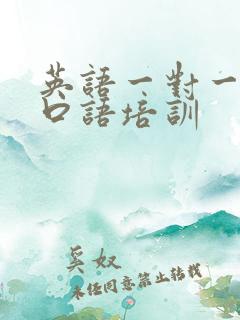 英語一對一
口語培訓
奚奴
未經同意禁止轉載